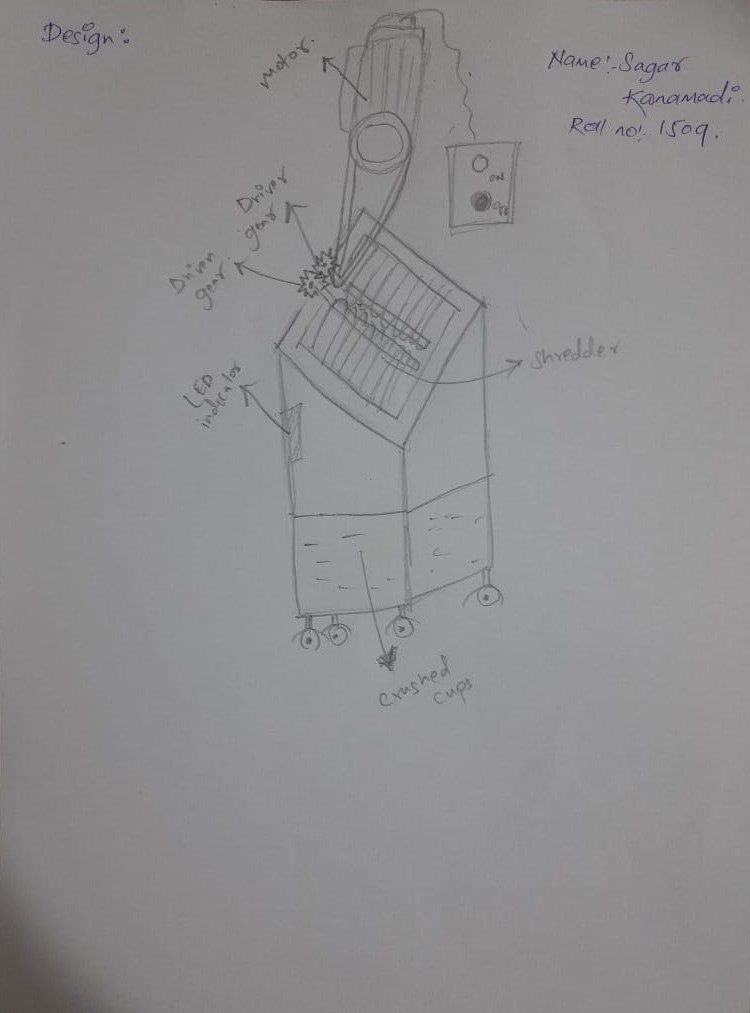 Design:
Name:- Sagar
Kanamadi.
Roll no:. 1509.
motor.
ON
OFF
Driver
gear
Driven
gear.
shredder
LED
indicator
crushed
cups